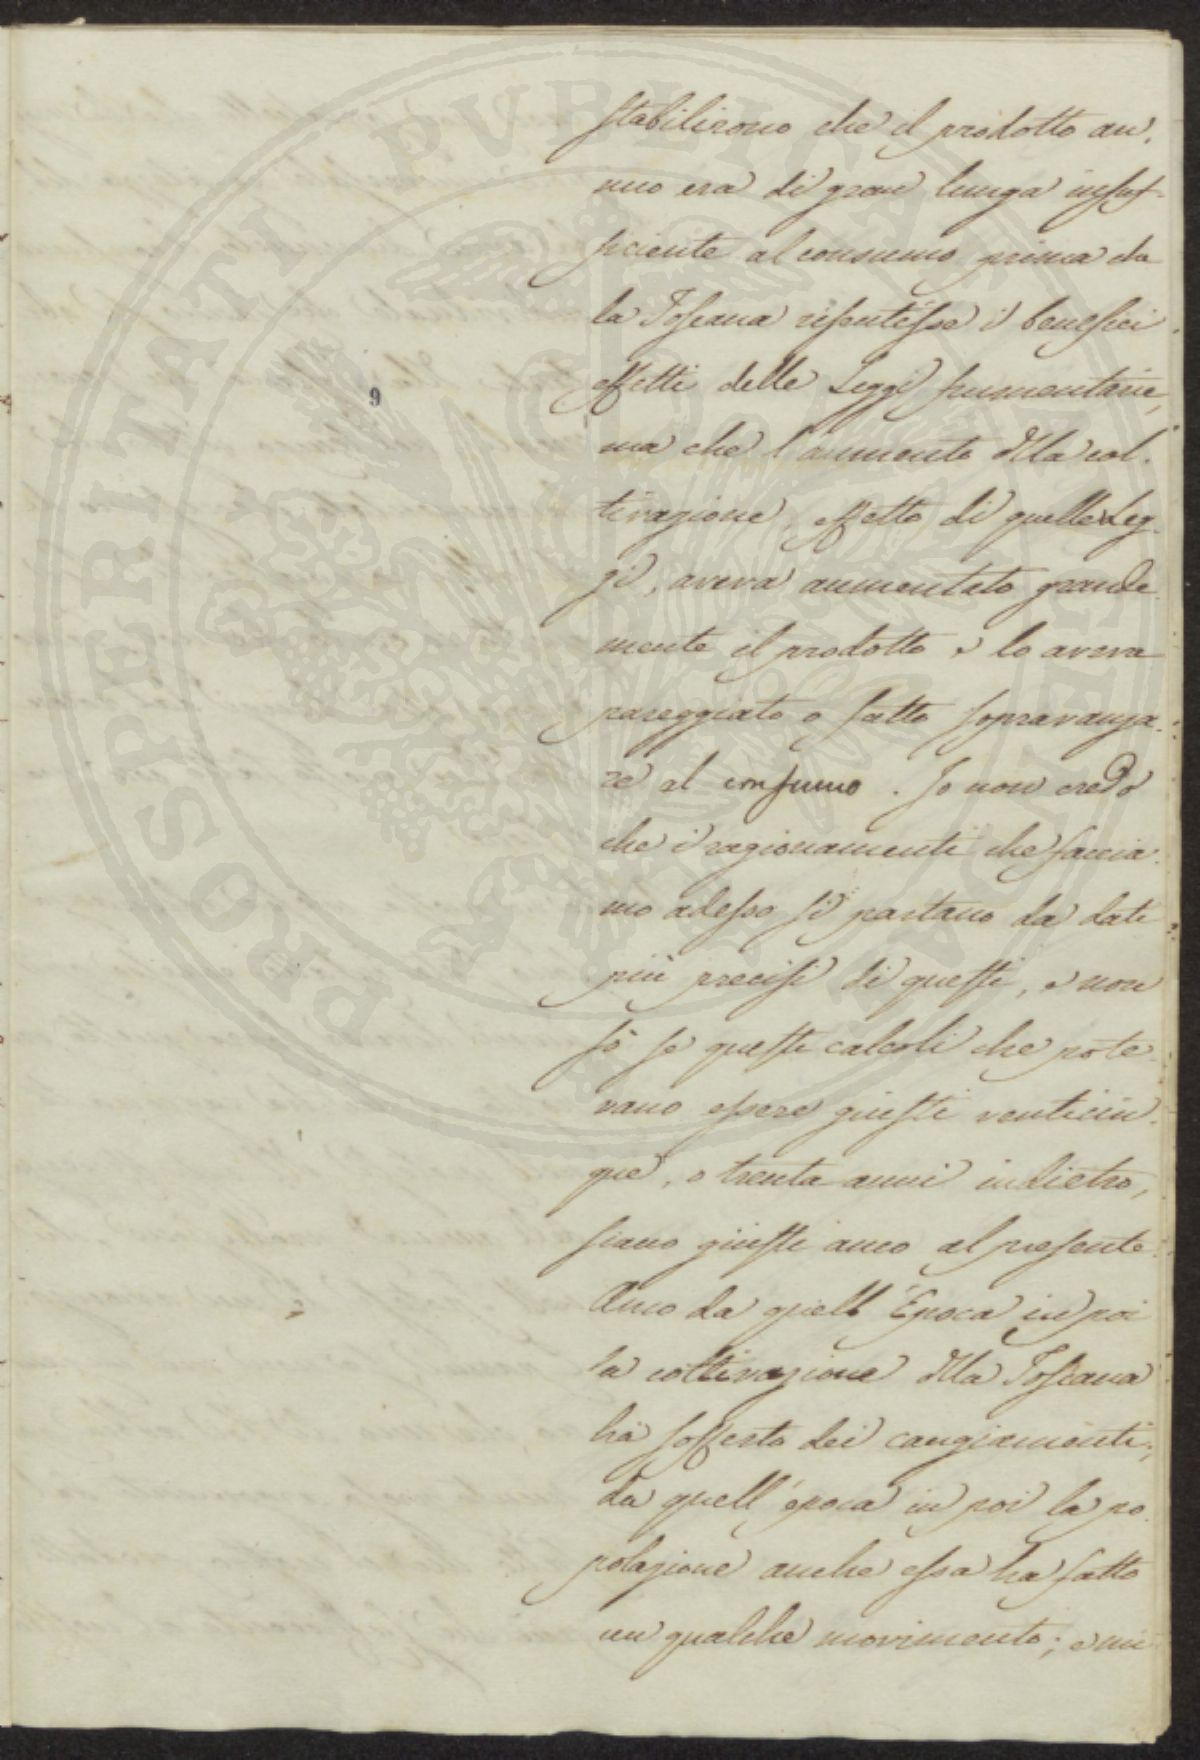 stabilirono che il prodotto an-
nuo era di gran lunga insuf-
ficiente al consumo prima che
la Toscana risentisse i benefici
effetti delle Leggi frumentarie,
ma che l'aumento della col-
tivazione, effetto di quelle Leg-
gi, aveva aumentato grande
mente il prodotto e lo aveva
pareggiato o fatto sopravanza-
re al consumo. Io non credo
che i ragionamenti che faccia-
mo adesso si partano da dati
più precisi di questi, e non
sò se questi calcoli che pote-
vano essere giusti venticin-
que, o trenta anni indietro,
siano giusti anco al presente.
Anco da quell'Epoca in poi
la coltivazione della Toscana
ha sofferto dei cangiamenti;
da quell'epoca in poi la po-
polazione anche essa ha fatto
un qualche movimento; e mi
9
PROSPERITATI PVBLICAE AVGENDAE